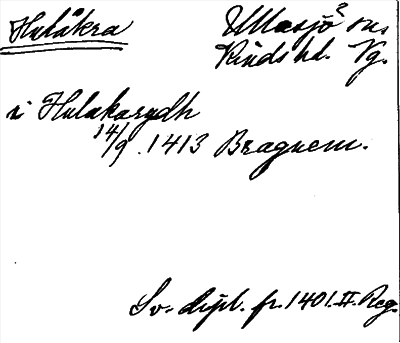 Hulåkra
Ullasjö? sn.
Kinds hd. Vg.
i Hulakarydh
14/9 1413 Bragnem.
Sv. dipl. fr. 1401. II. Reg.